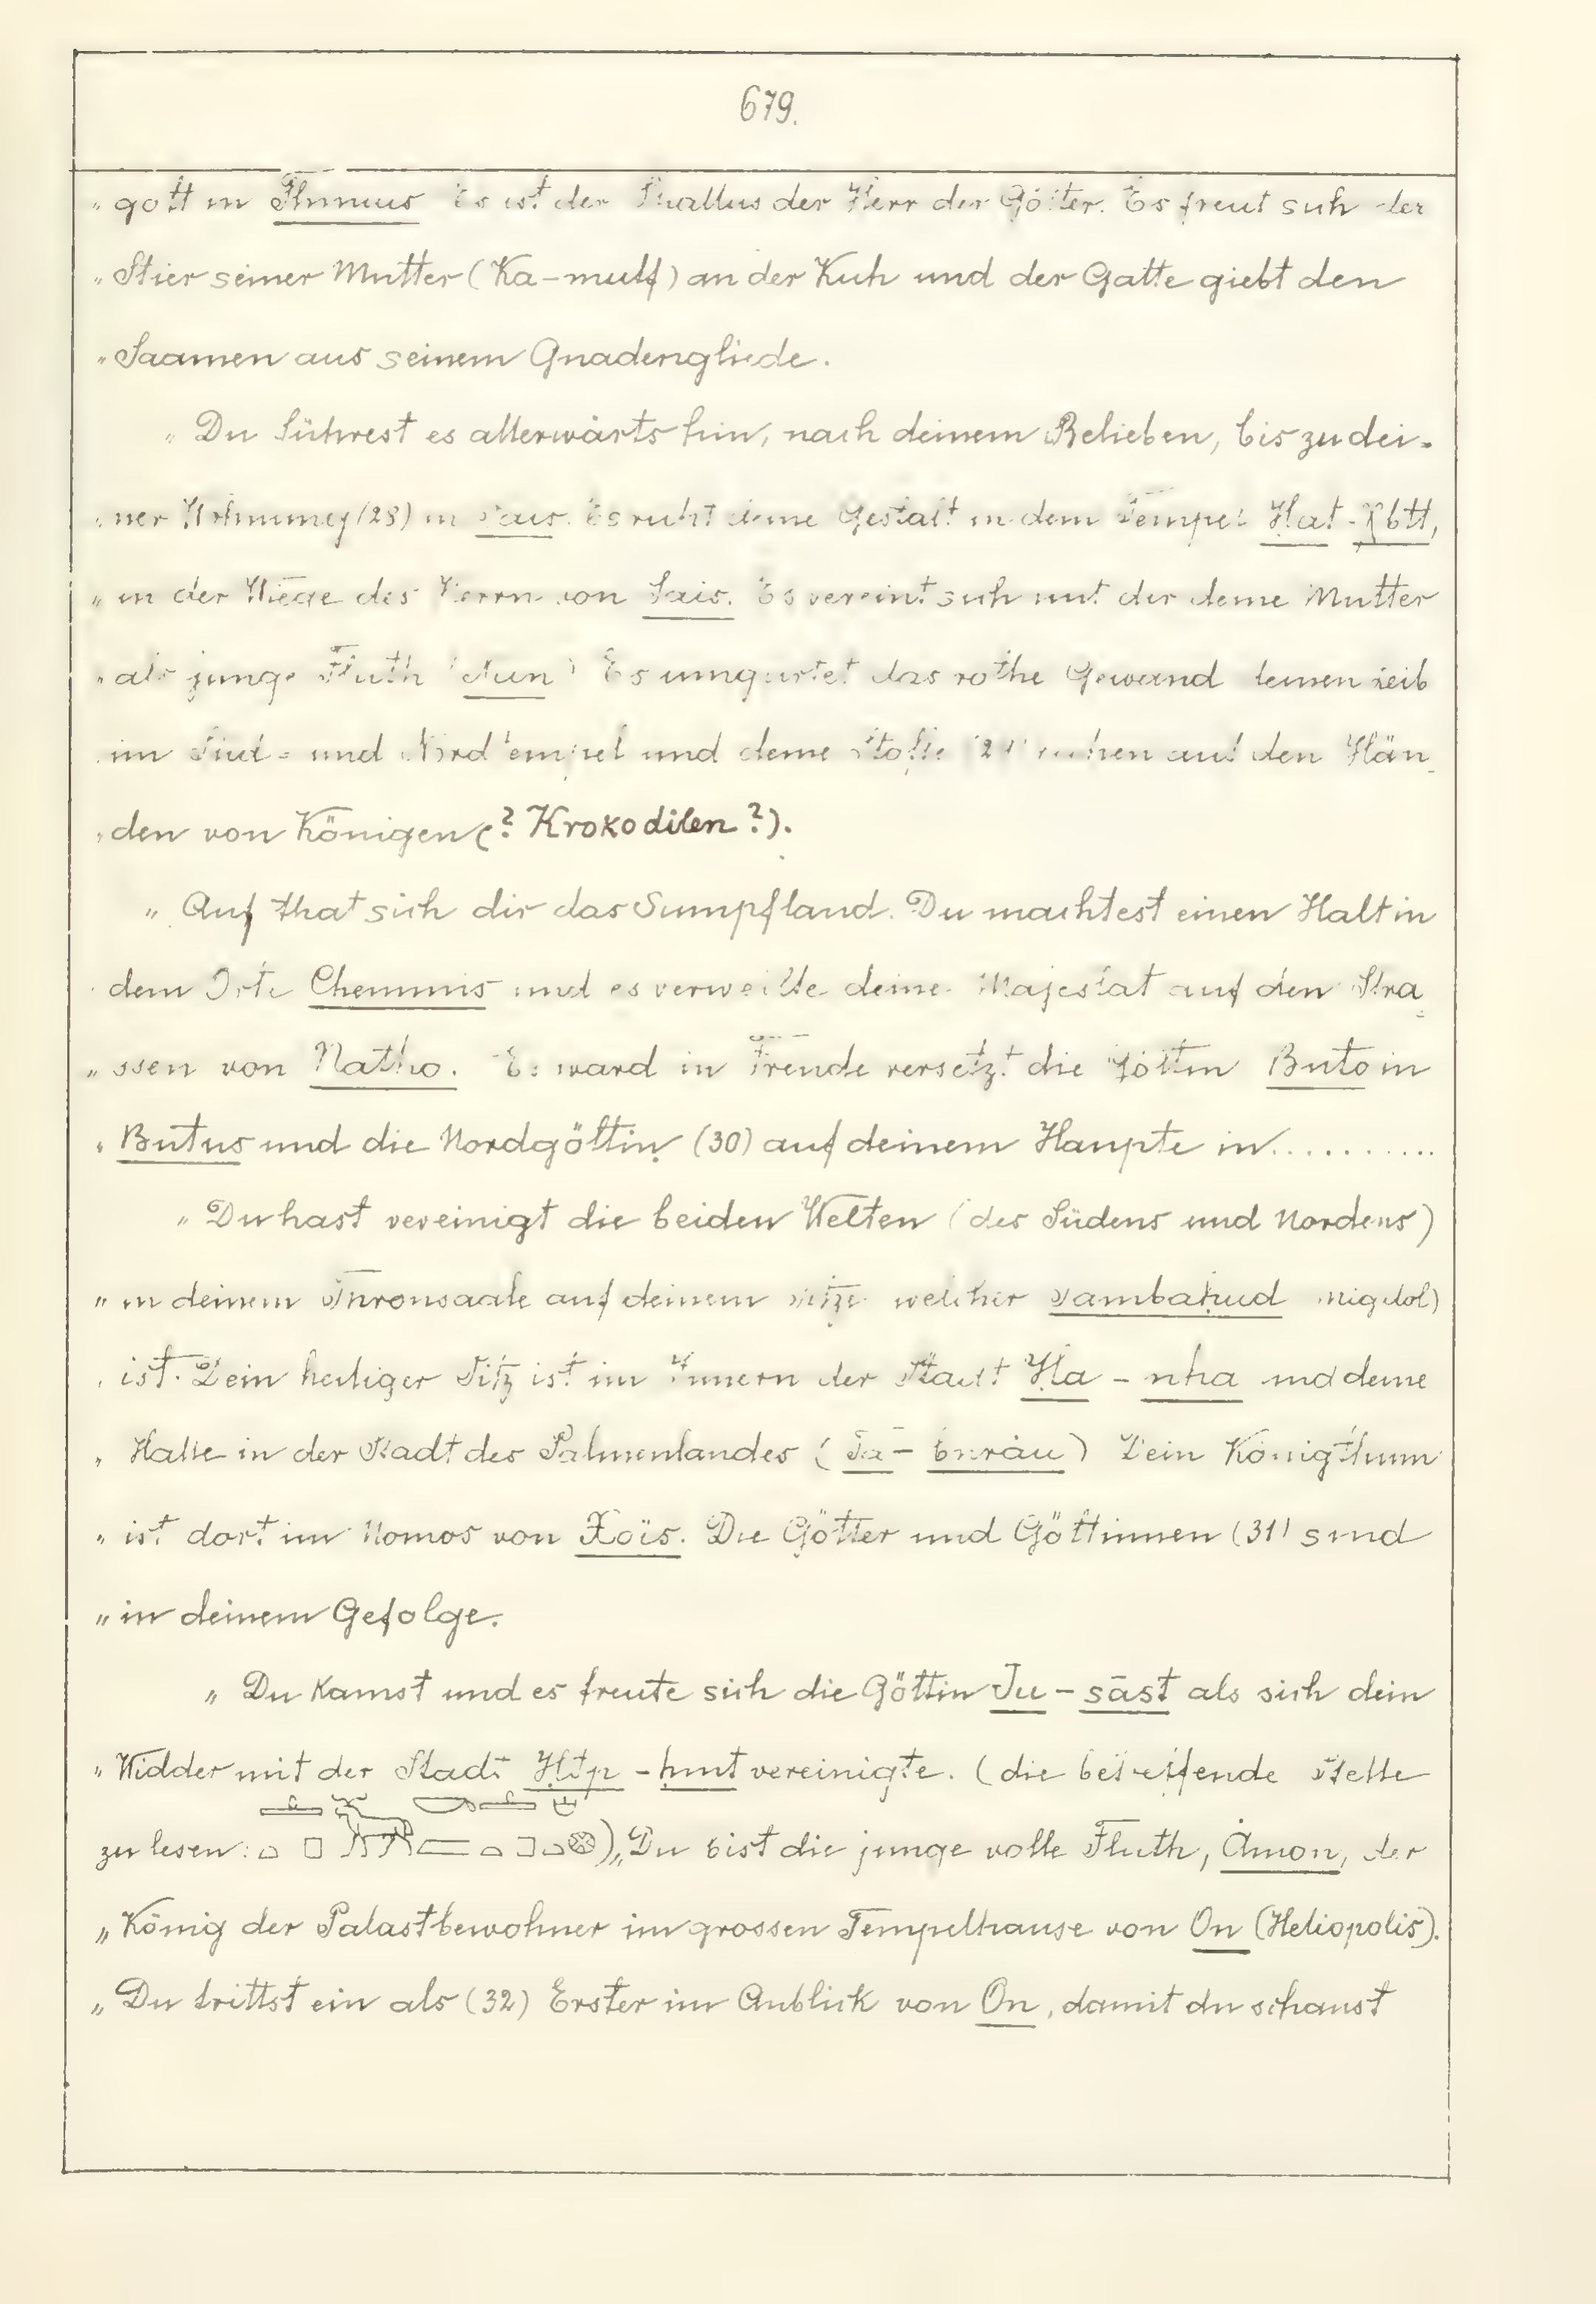 679.
„ gott in Thmuis Es ist der Phallus der Herr der Götter. Es freut sich der
„ Stier seiner Mutter (Ka-mutf) an der Kuh und der Gatte giebt den
„ Saamen aus seinem Gnadengliede.
„ Du führest es allerwärts hin, nach deinem Belieben, bis zu dei-
„ ner (28) in Sais. Es ruht deine Gestalt in dem Tempel Hat-Xbtt,
„ in der Wiege des Herrn von Sais. Es vereint sich mit dir deine Mutter
„ als junge Fluth (Nun) Es umgürtet das rothe Gewand deinen Leib
im Süd- und Nordtempel und deine Stoffe ruhen auf den Hän-
„ den von Königen (? Krokodilen ?).
„ Auf that sich dir das Sumpfland. Du machtest einen Halt in
dem Orte Chemmis und es verweilte deine Majestät auf den Stra-
„ ssen von Natho. Es ward in Freude versetzt die Göttin Buto in
„ Butus und die Nordgöttin (30) auf deinem Haupte in...........
„ Du hast vereinigt die beiden Welten (des Südens und Nordens)
„ in deinem Thronsaale auf deinem Sitze welcher Sambahud Migdol)
„ ist. Dein heiliger Sitz ist im Innern der Stadt Ha - nha und deine
„ Halle in der Stadt des Palmenlandes (Ta - bnrau) Dein Königthum
„ ist dort im Nomos von Xoïs. Die Götter und Göttinnen (31) sind
„ in deinem Gefolge.
„ Du kamst und es freute sich die Göttin Ju - sāst als sich dein
„ Widder mit der Stadt Htp - hmt vereinigte. (die betreffende Stelle
zu lesen: ) „Du bist die junge volle Fluth, Åmon, der
„ König der Palastbewohner im grossen Tempelhause von On (Heliopolis).
„ Du trittst ein als (32) Erster im Anblick von On, damit du schaust